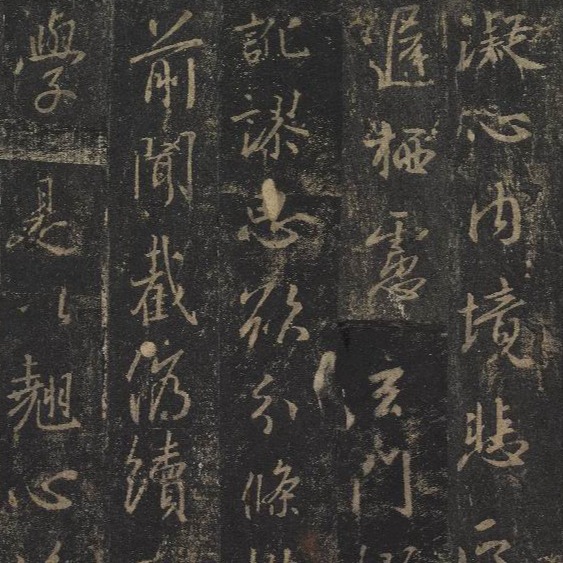 凝心内境悲
遲栖慮玄門
訛謬思欲分條
前聞截偽續
學是以翹心